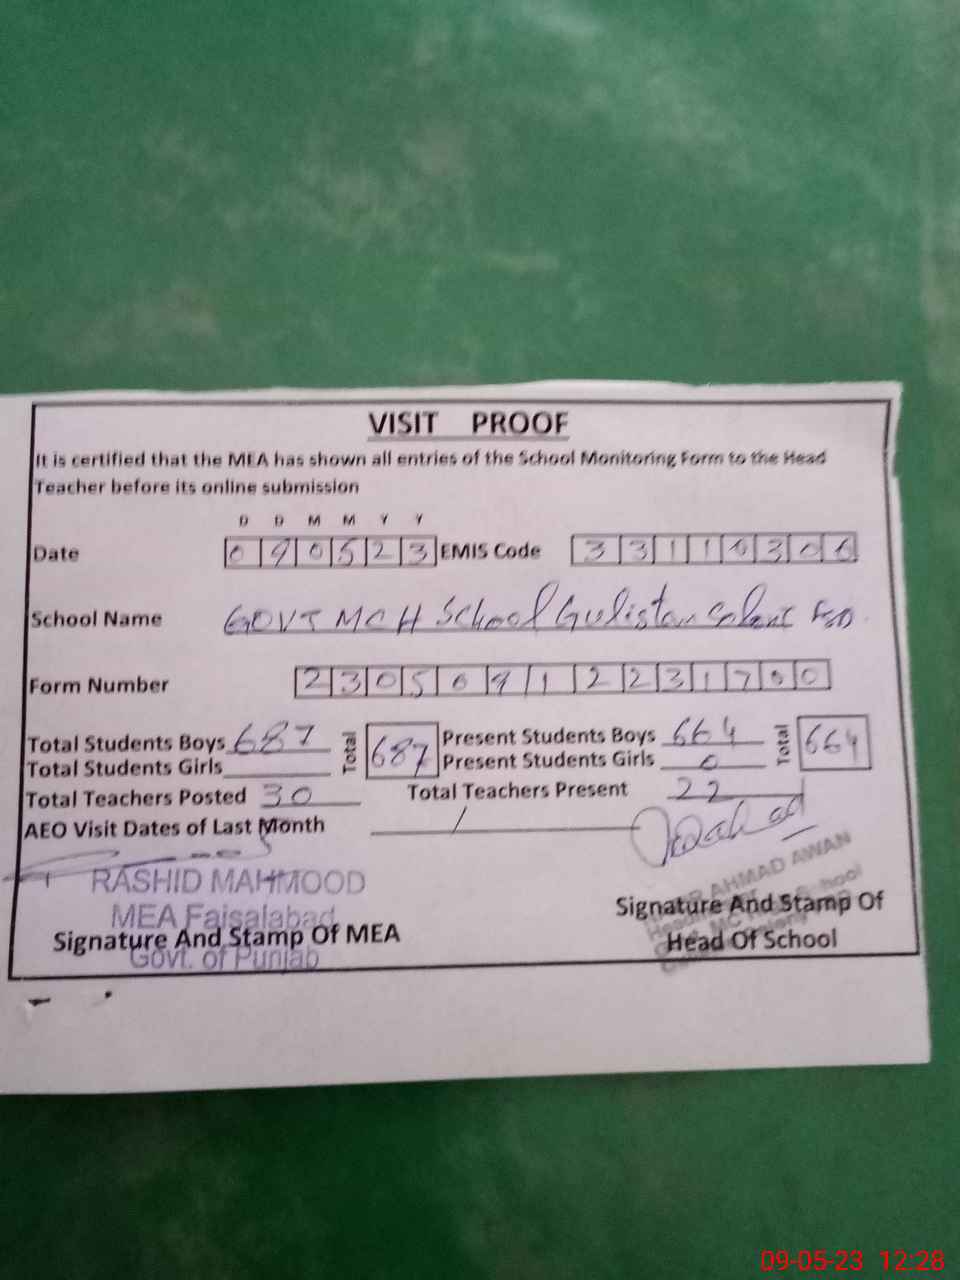 VISIT PROOF
It is certified that the MEA has shown all entries of the School Monitoring Form to the Head
Teacher before its online submission
D D M M Y Y
Date 0 9 0 5 2 3 EMIS Code 3 3 1 1 0 3 0 6
School Name GOVT MC H School Gulistan Colony FSD
Form Number 2 3 0 5 0 9 1 2 2 3 1 7 0 0
Total Students Boys 687 Total 687 Present Students Boys 664 Total 664
Total Students Girls Present Students Girls 0
Total Teachers Posted 30 Total Teachers Present 22
AEO Visit Dates of Last Month /
RASHID MAHMOOD
MEA Faisalabad
Govt. of Punjab
Signature And Stamp Of MEA
AHMAD AWAN
Signature And Stamp Of
Head Of School
09-05-23 12:28